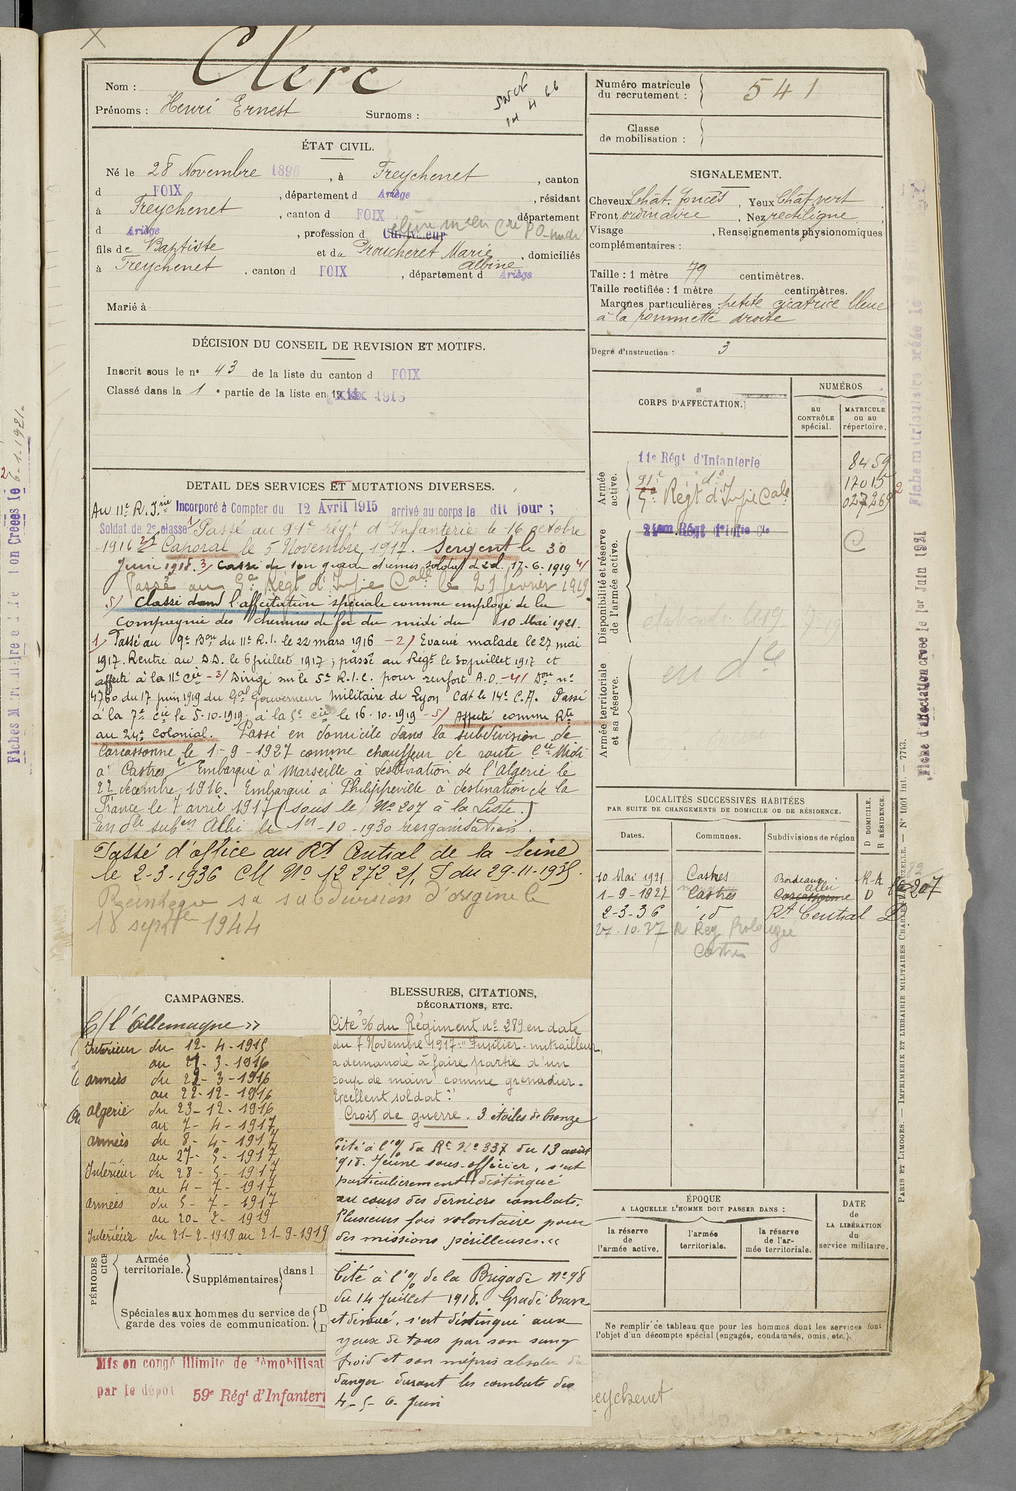 Clerc
Nom :
Prénoms : Henri Ernest Surnoms :
Numéro matricule
du recrutement : 541
Classe
de mobilisation :
ÉTAT CIVIL.
Né le 28 Novembre 1896, à Freychenet, canton
d FOIX, département d Ariège, résidant
à Freychenet, canton d FOIX département
d Ariège, profession d
fils de Baptiste et de Proucheret Marie Albine, domiciliés
à Freychenet, canton d FOIX, département d Ariège
Marié à
SIGNALEMENT.
Cheveux Chât. foncés, Yeux Chât vert
Front ordinaire, Nez rectiligne
Visage, Renseignements physionomiques
complémentaires :
Taille : 1 mètre 79 centimètres.
Taille rectifiée : 1 mètre centimètres.
Marques particulières petite cicatrice bleue
à la pommette droite
Degré d'instruction : 3
DÉCISION DU CONSEIL DE REVISION ET MOTIFS.
Inscrit sous le nº 43 de la liste du canton d FOIX
Classé dans la 1e partie de la liste en 1915
CORPS D'AFFECTATION.
NUMÉROS
AU CONTRÔLE spécial.
MATRICULE ou au répertoire.
Armée active.
11e Régt d'Infanterie 8459
91e do 17015
5e Régt d'Infie Cale
Disponibilité et réserve de l'armée active.
24em Régt d'Infie Cle
Armée territoriale et sa réserve.
DETAIL DES SERVICES ET MUTATIONS DIVERSES.
Au 11e R. Irie Incorporé à Compter du 12 Avril 1915 arrivé au corps le dit jour ;
Soldat de 2e classe Passé au 91e régt d'Infanterie le 16 octobre
1916 Caporal le 5 Novembre 1917. Sergent le 30
Juin 1918. 3/ Cassé de son grade et remis soldat de 2cl. 17-6-1919 4/
Passé au 5e Regt d'Infie Cale le 21 février 1919
5/ Classé dans l'affectation spéciale comme employé de la
Compagnie des chemins de fer du midi du 10 Mai 1921.
1/ Passé au 9e Bon du 11e R.I. le 22 mars 1916 - 2/ Evacué malade le 27 mai
1917. Rentré au D.D. le 6 juillet 1917 ; passé au Régt le 30 juillet 1917 et
affecté à la 11e Cie - 3/ Dirigé sur le 5e R.I.C. pour renfort A.O. - 4/ Don nº
4760 du 17 juin 1919 du Gal Gouverneur militaire de Lyon Cdt le 14e C.A. Passé
à la 7e Cie le 5-10-1919, à la 5e Cie le 16-10-1919 - 5/ Affecté comme Rte
au 24e Colonial. Passé en domicile dans la subdivision de
Carcassonne le 1-9-1927 comme chauffeur de route Cie Midi
à Castres / Embarqué à Marseille à destination de l'Algérie le
22 décembre 1916. Embarqué à Philippeville à destination de la
France le 7 avril 1917 (sous le Nº 207 à la Liste.)
En dle subon Albi le 1er-10-1930 réorganisation.
Passé d'office au Rt Central de la Seine
le 2-3-1936 CM Nº 12 272 2/. I du 29-11-1935.
Réintégré sa subdivision d'origine le
18 septbre 1944
LOCALITÉS SUCCESSIVES HABITÉES
PAR SUITE DE CHANGEMENTS DE DOMICILE OU DE RÉSIDENCE.
Dates. Communes. Subdivisions de région D DOMICILE. R RÉSIDENCE.
10 Mai 1921 Castres Bordeaux R-A
1-9-1927 Castres Carcassonne Albi D
2-3-36 id Rt Central D
27-10-37 R Reg Prolongée
Castres
CAMPAGNES.
C/ l'Allemagne »
Intérieur du 12-4-1915
au 21-3-1916
armées du 22-3-1916
au 22-12-1916
algérie du 23-12-1916
au 7-4-1917
armées du 8-4-1917
au 27-5-1917
Intérieur du 28-5-1917
au 4-7-1917
armées du 5-7-1917
au 20-2-1919
Intérieur du 21-2-1919 au 21-9-1919
BLESSURES, CITATIONS,
DÉCORATIONS, ETC.
Cité à l'o/ du Régiment nº 289 en date
du 7 Novembre 1917 "Fusilier-mitrailleur
a demandé à faire partie d'un
coup de main comme grenadier.
Excellent soldat"
Croix de guerre. 3 étoiles de bronze
Cité à l'o/ du Rt Nº 337 du 13 août
1918. Jeune sous-officier, s'est
particulièrement distingué
au cours des derniers combats.
Plusieurs fois volontaire pour
des missions périlleuses. «
Cité à l'o/ de la Brigade Nº 98
du 14 Juillet 1918. Gradé brave
et dévoué, s'est distingué aux
yeux de tous par son sang
froid et son mépris absolu du
danger durant les combats des
4-5-6 Juin
PÉRIODES
Armée territoriale. Supplémentaires dans l
Spéciales aux hommes du service de
garde des voies de communication.
ÉPOQUE
A LAQUELLE L'HOMME DOIT PASSER DANS :
la réserve de l'armée active.
l'armée territoriale.
la réserve de l'armée territoriale.
DATE de LA LIBÉRATION du service militaire.
Ne remplir ce tableau que pour les hommes dont les services font
l'objet d'un décompte spécial (engagés, condamnés, omis, etc.).
Mis en congé illimité de démobilisat
par le dépôt 59e Régt d'Infanteri
eychenet
Fiche d'affectation créée le 1er Juin 1921
PARIS ET LIMOGES. — IMPRIMERIE ET LIBRAIRIE MILITAIRES CHARLES-LAVAUZELLE. — Nº 1001 Int. — 7743.